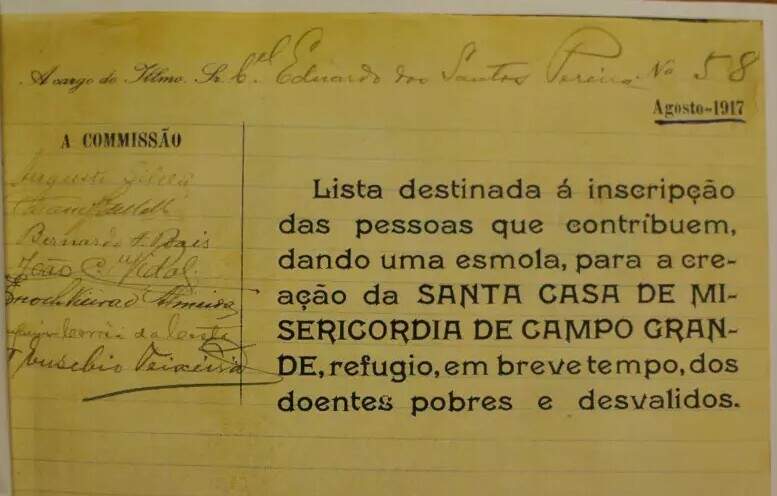 A cargo do Illmo. Sr. Cel Eduardo dos Santos Pereira No 58
Agosto-1917
A COMMISSÃO
Bernardo
João C. Vidal
Almeida
Eusebio Teixeira
Lista destinada á inscripção
das pessoas que contribuem,
dando uma esmola, para a cre-
ação da SANTA CASA DE MI-
SERICORDIA DE CAMPO GRAN-
DE, refugio, em breve tempo, dos
doentes pobres e desvalidos.